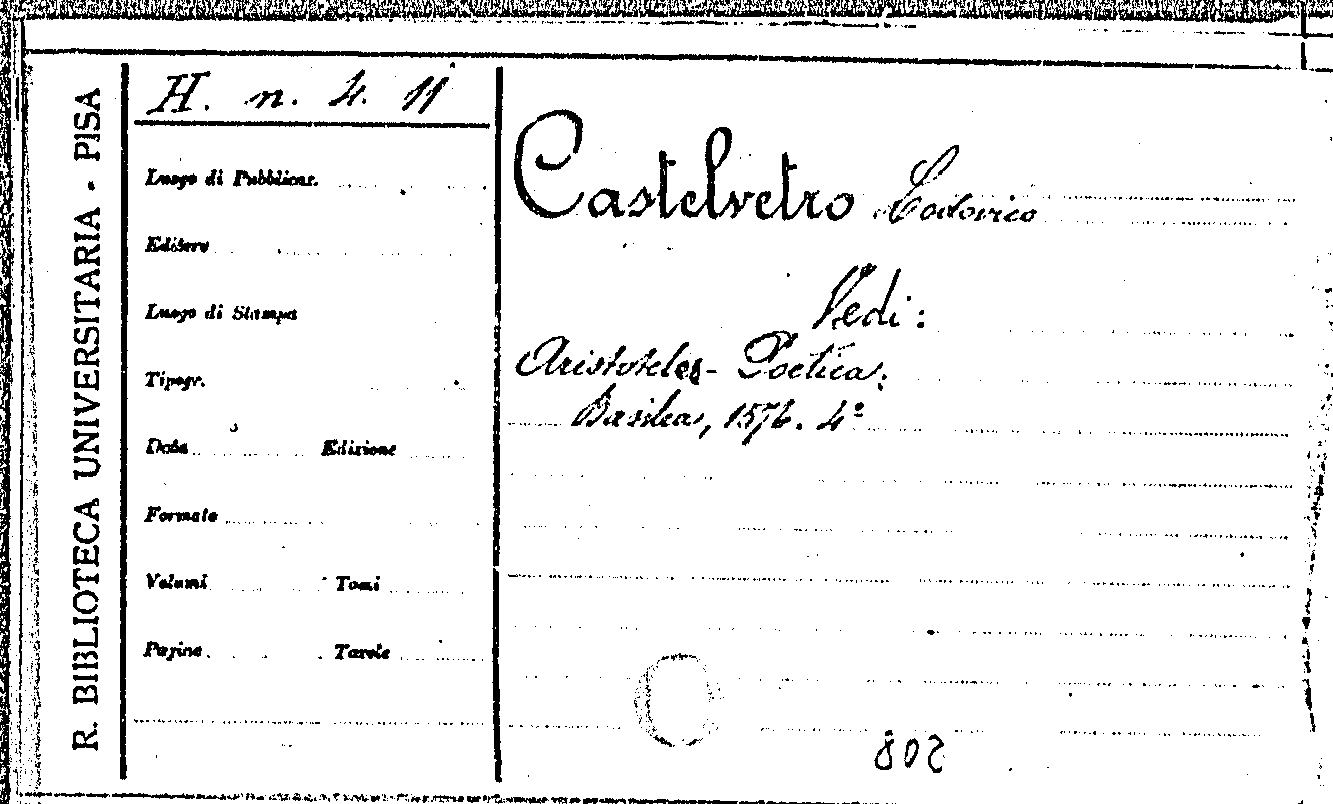 R. BIBLIOTECA UNIVERSITARIA - PISA
H. n. 4. 11
Luogo di Pubblicaz.
Editore
Luogo di Stampa
Tipogr.
Data Edizione
Formato
Volumi Tomi
Pagine Tavole
Castelvetro Lodovico
Vedi:
Aristoteles - Poetica.
Basilea, 1576. 4º